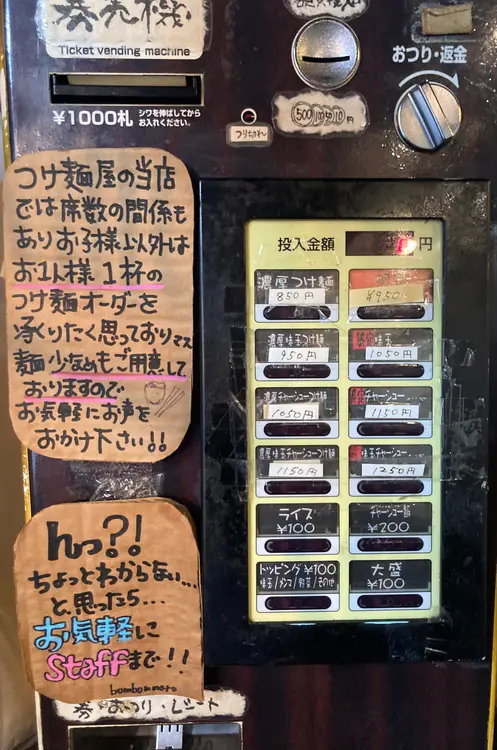 券売機
Ticket vending machine
¥1000札
シワを伸ばしてから
お入れください。
つり切れ
500 100 50 10 円
おつり・返金
つけ麺屋の当店
では席数の関係も
ありお子様以外は
お1人様1杯の
つけ麺オーダーを
承りたく思っており〼
麺少なめもご用意して
おりますので
お気軽にお声を
おかけ下さい!!
投入金額
円
濃厚つけ麺
850円
¥950
濃厚味玉つけ麺
950円
味玉
1050円
濃厚チャーシューつけ麺
1050円
チャーシュー
1150円
濃厚味玉チャーシューつけ麺
1150円
味玉チャーシュー
1250円
ライス
¥100
チャーシュー飯
¥200
トッピング ¥100
味玉/メンマ/野菜/その他
大盛
¥100
んっ?!
ちょっとわからない...
と思ったら...
お気軽に
Staffまで!!
券・おつり・レシート